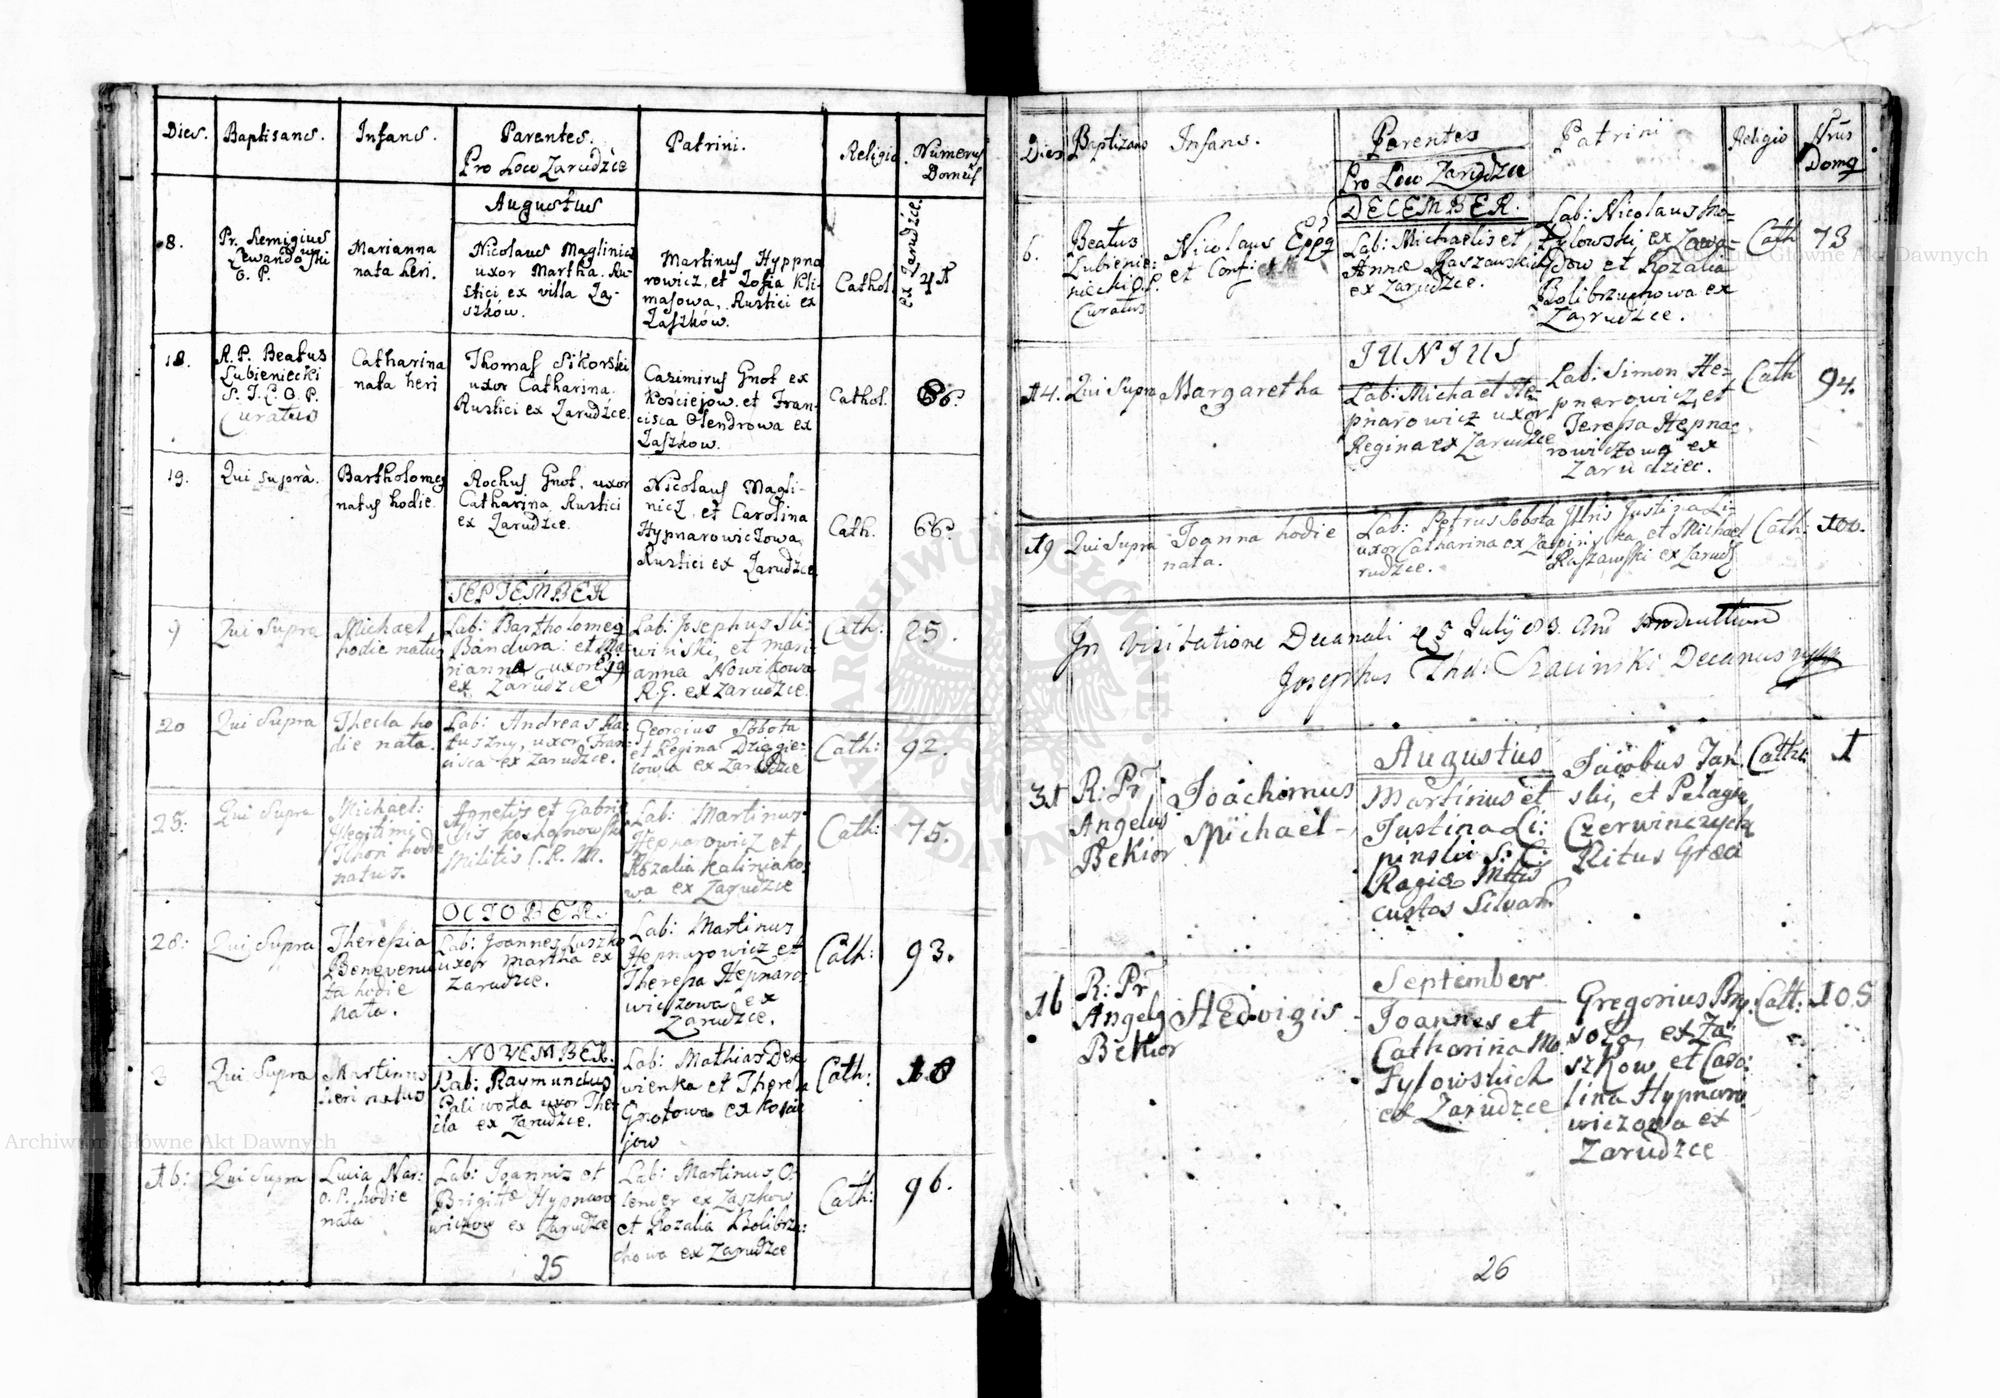 Dies.
Baptisans.
Infans.
Parentes.
Pro Loco Zarudzie
Patrini.
Religio.
Numerus
Domus
Augustus
8.
Pr. Remigius
Lewandowski
O. P.
Marianna
nata heri.
Nicolaus Maglinicz
uxor Martha. Ru-
stici ex villa Za-
szków.
Martinus Hyppna
rowicz, et Zofia Kli-
masowa, Rustici ex
Zaszków.
Cathol.
ex Zarudzie.
41
18.
R. P. Beatus
Lubieniecki
S. T. L. O. P.
Curatus
Catharina
nata heri
Thomas Sikorski
uxor Catharina.
Rustici ex Zarudzie.
Casimirus Gnot ex
Kosciejow, et Fran-
cisca Olendrowa ex
Zaszkow.
Cathol.
86.
19.
Qui supra.
Bartholomeg
natus hodie.
Rochus Gnot, uxor
Catharina Rustici
ex Zarudzce.
Nicolaus Magli-
nicz, et Carolina
Hypnarowiczowa,
Rustici ex Zarudzce
Cath.
66.
SEPTEMBER
9
Qui Supra
Michael
hodie natus
Lab: Bartholomeg
Bandura: et Ma
rianna uxor Ejg
ex Zarudzie
Lab: Josephus Sli-
winski, et mari-
anna Nowikowa
R. G. ex Zarudzce.
Cath:
25.
20
Qui Supra
Thecla ho
die nata.
Lab: Andreas Ra
tuszny, uxor Fran-
cisca ex Zarudzce.
Georgius Sobota
et Regina Dziggie-
lowa ex Zarudzce
Cath:
92.
25:
Qui Supra
Michael:
Illegitimi
Thori hodie
natus.
Agnetis et Gabri
Militis C. R. M.
Lab: Martinus
Hepnarowicz et
Rozalia Kaliniako-
wa ex Zarudzce
Cath:
75.
OCTOBER.
28:
Qui Supra
Theressia
Benevenu
ta hodie
nata.
Lab: Joannes Luszko
uxor Martha ex
Zarudzce.
Lab: Martinus
Hepnarowicz et
Theressa Hepnaro-
wiczowa ex
Zarudzce.
Cath:
93.
NOVEMBER.
3
Qui Supra
Martinus
heri natus
Lab: Raymundus
Paliwoda uxor The-
cla ex Zarudzce.
Lab: Mathias Dere
wienka et Theresa
Gnotowa ex Kosciejow
Cath:
10
16:
Qui Supra
Lucia Nar:
O. P. hodie
nata
Lab: Joannis et
Brigitæ Hypnaro
wiczow ex Zarudzce
Lab: Martinus O-
lender ex Zaszkow
et Rozalia Bolibrzu-
chowa ex Zarudzce
Cath:
96.
25
Dies
Baptizans
Infans.
Parentes
Pro Loco Zarudzce
Patrini
Religio
Nrus
Domg
DECEMBER.
6.
Beatus
Lubienie-
niecki O. P.
Curatus
Nicolaus Eppg
et Conf:
Lab: Michaelis et
Annæ Raszawskich
ex Zarudzce.
Lab: Nicolaus Mo-
tylowski ex Zawa-
dow et Rozalia
Bolibrzuchowa ex
Zarudzce.
Cath
73
JUNIUS
14.
Qui Supra
Margaretha
Lab: Michael He-
pnarowicz uxor
Regina ex Zarudzce
Lab: Simon He-
pnarowicz, et
Teressa Hepna-
rowiczowa ex
Zarudziec.
Cath
94.
19
Qui Supra
Joanna hodie
nata.
Lab: Petrus Sobota
uxor Catharina ex Za
rudzce.
Illris Justina Li-
pinska, et Michael
Raszawski ex Zarudz
Cath:
100.
In Visitatione Decanali 25 July 83.
Josephus Thad: Szacinski Decanus
Augustus
31
R: Pr
Angelus
Bekior
Joachimus
Michael-
Martinus et
Justina Li:
pinski S: C:
Ragiæ Mttis
custos Silvarū
Jacobus Jan.
ski, et Pelagia
Czerwinczycka
Ritus Græci
Cath:
1
September
16
R: Pr
Angelg
Bekior
Hedvigis
Joannes et
Catharina Mo
tylowskich
ex Zarudzce
Gregorius Bry.
ex Za-
szkow, et Caro:
lina Hypnaro
wiczowa ex
Zarudzce
Cath:
105
26
Archiwum Główne Akt Dawnych
Archiwum Główne Akt Dawnych
ARCHIWUM GŁÓWNE AKT DAWNYCH